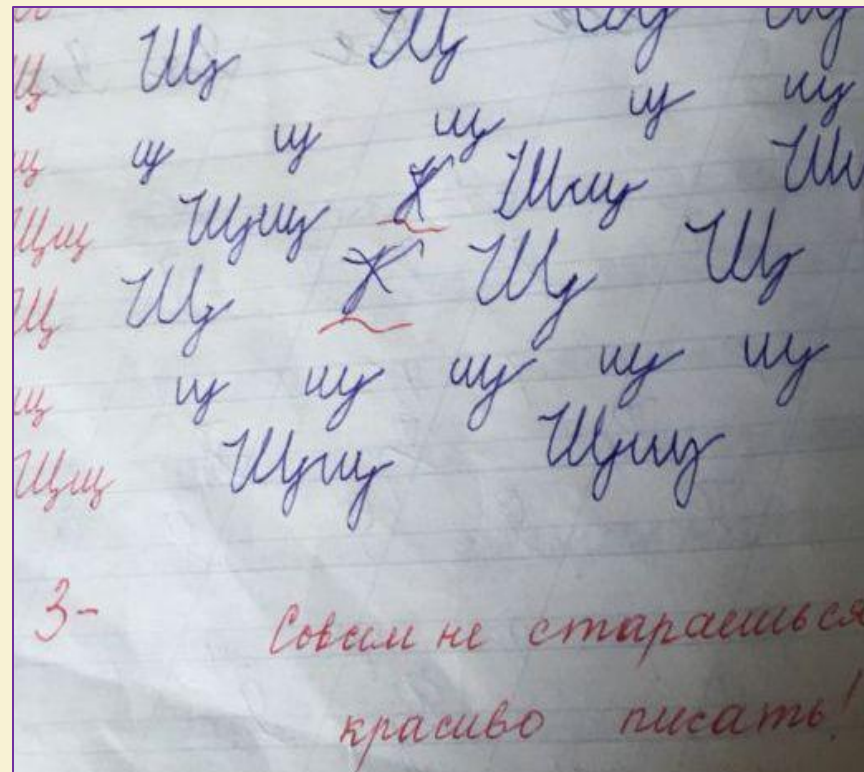 Щ Щ Щ Щ Щ
щ щ щ щ щ щ
Щщ Щщ К Щщ Щ
Щ Щ К Щ Щ
щ щ щ щ щ щ
Щщ Щщ Щщ
3- Совсем не стараешься
красиво писать!